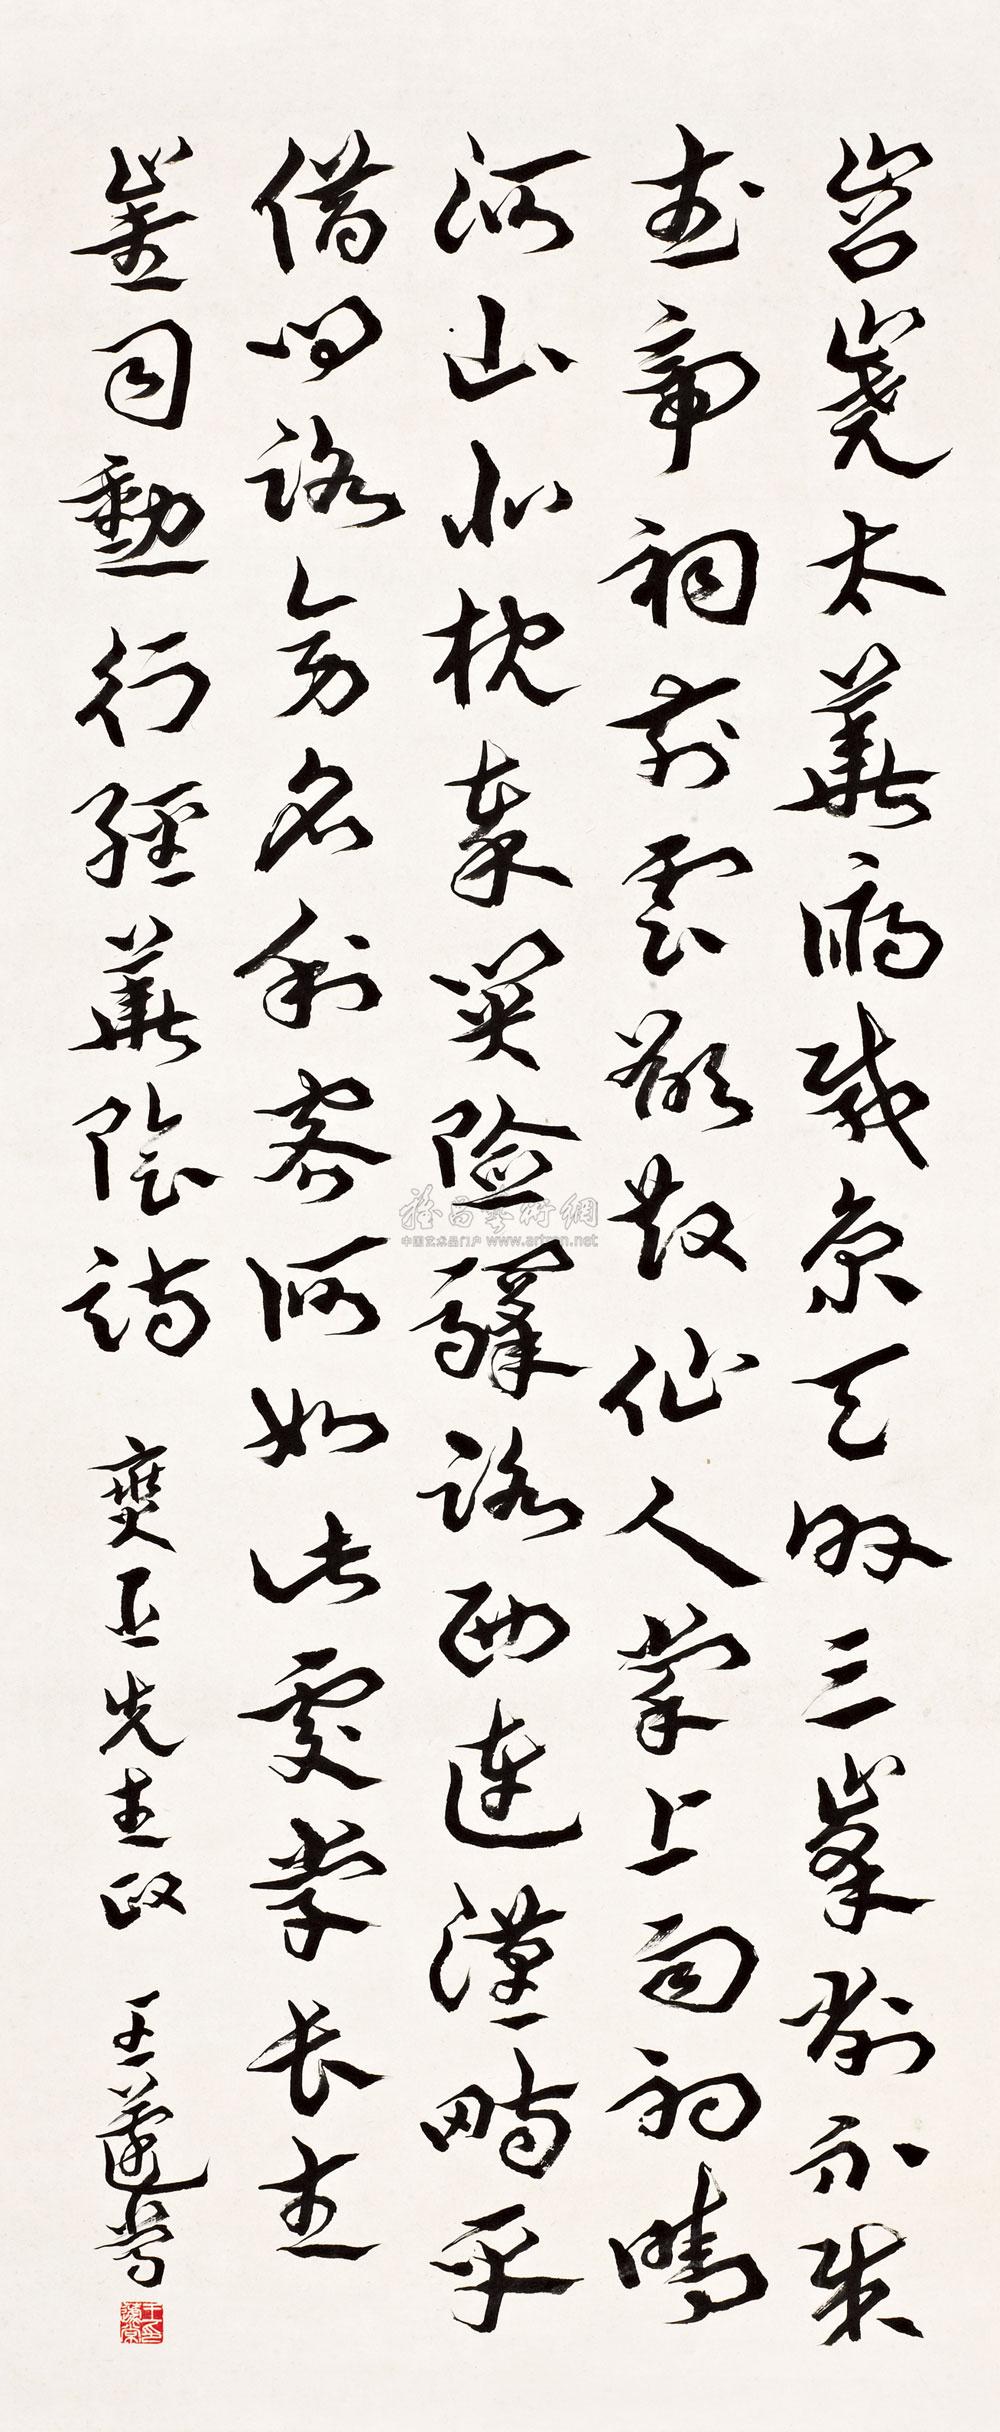 岧嶤太華俯咸京天外三峯削不成
武帝祠前雲欲散仙人掌上雨初晴
河山北枕秦關險驛路西連漢畤平
借問路旁名利客何如此處學長生
崔司勳行經華陰詩 先生政 王蘧常
王印蘧常
雅昌藝術網
中国艺术品门户 www.artron.net